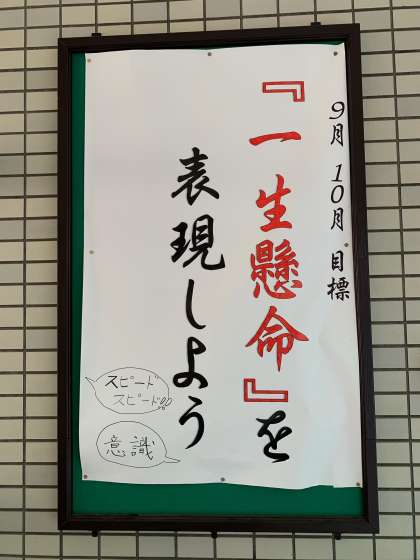 9月 10月 目標
『一生懸命』を
表現しよう
スピード
スピード!!
意識